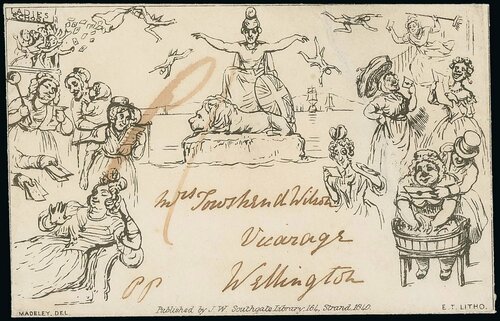 LADIES SCHOOL
Mrs Townshend Wilson
Vicarage
Wellington
PP
Published by J. W. Southgate Library, 164, Strand. 1840.
MADELEY, DEL.
E. T. LITHO.